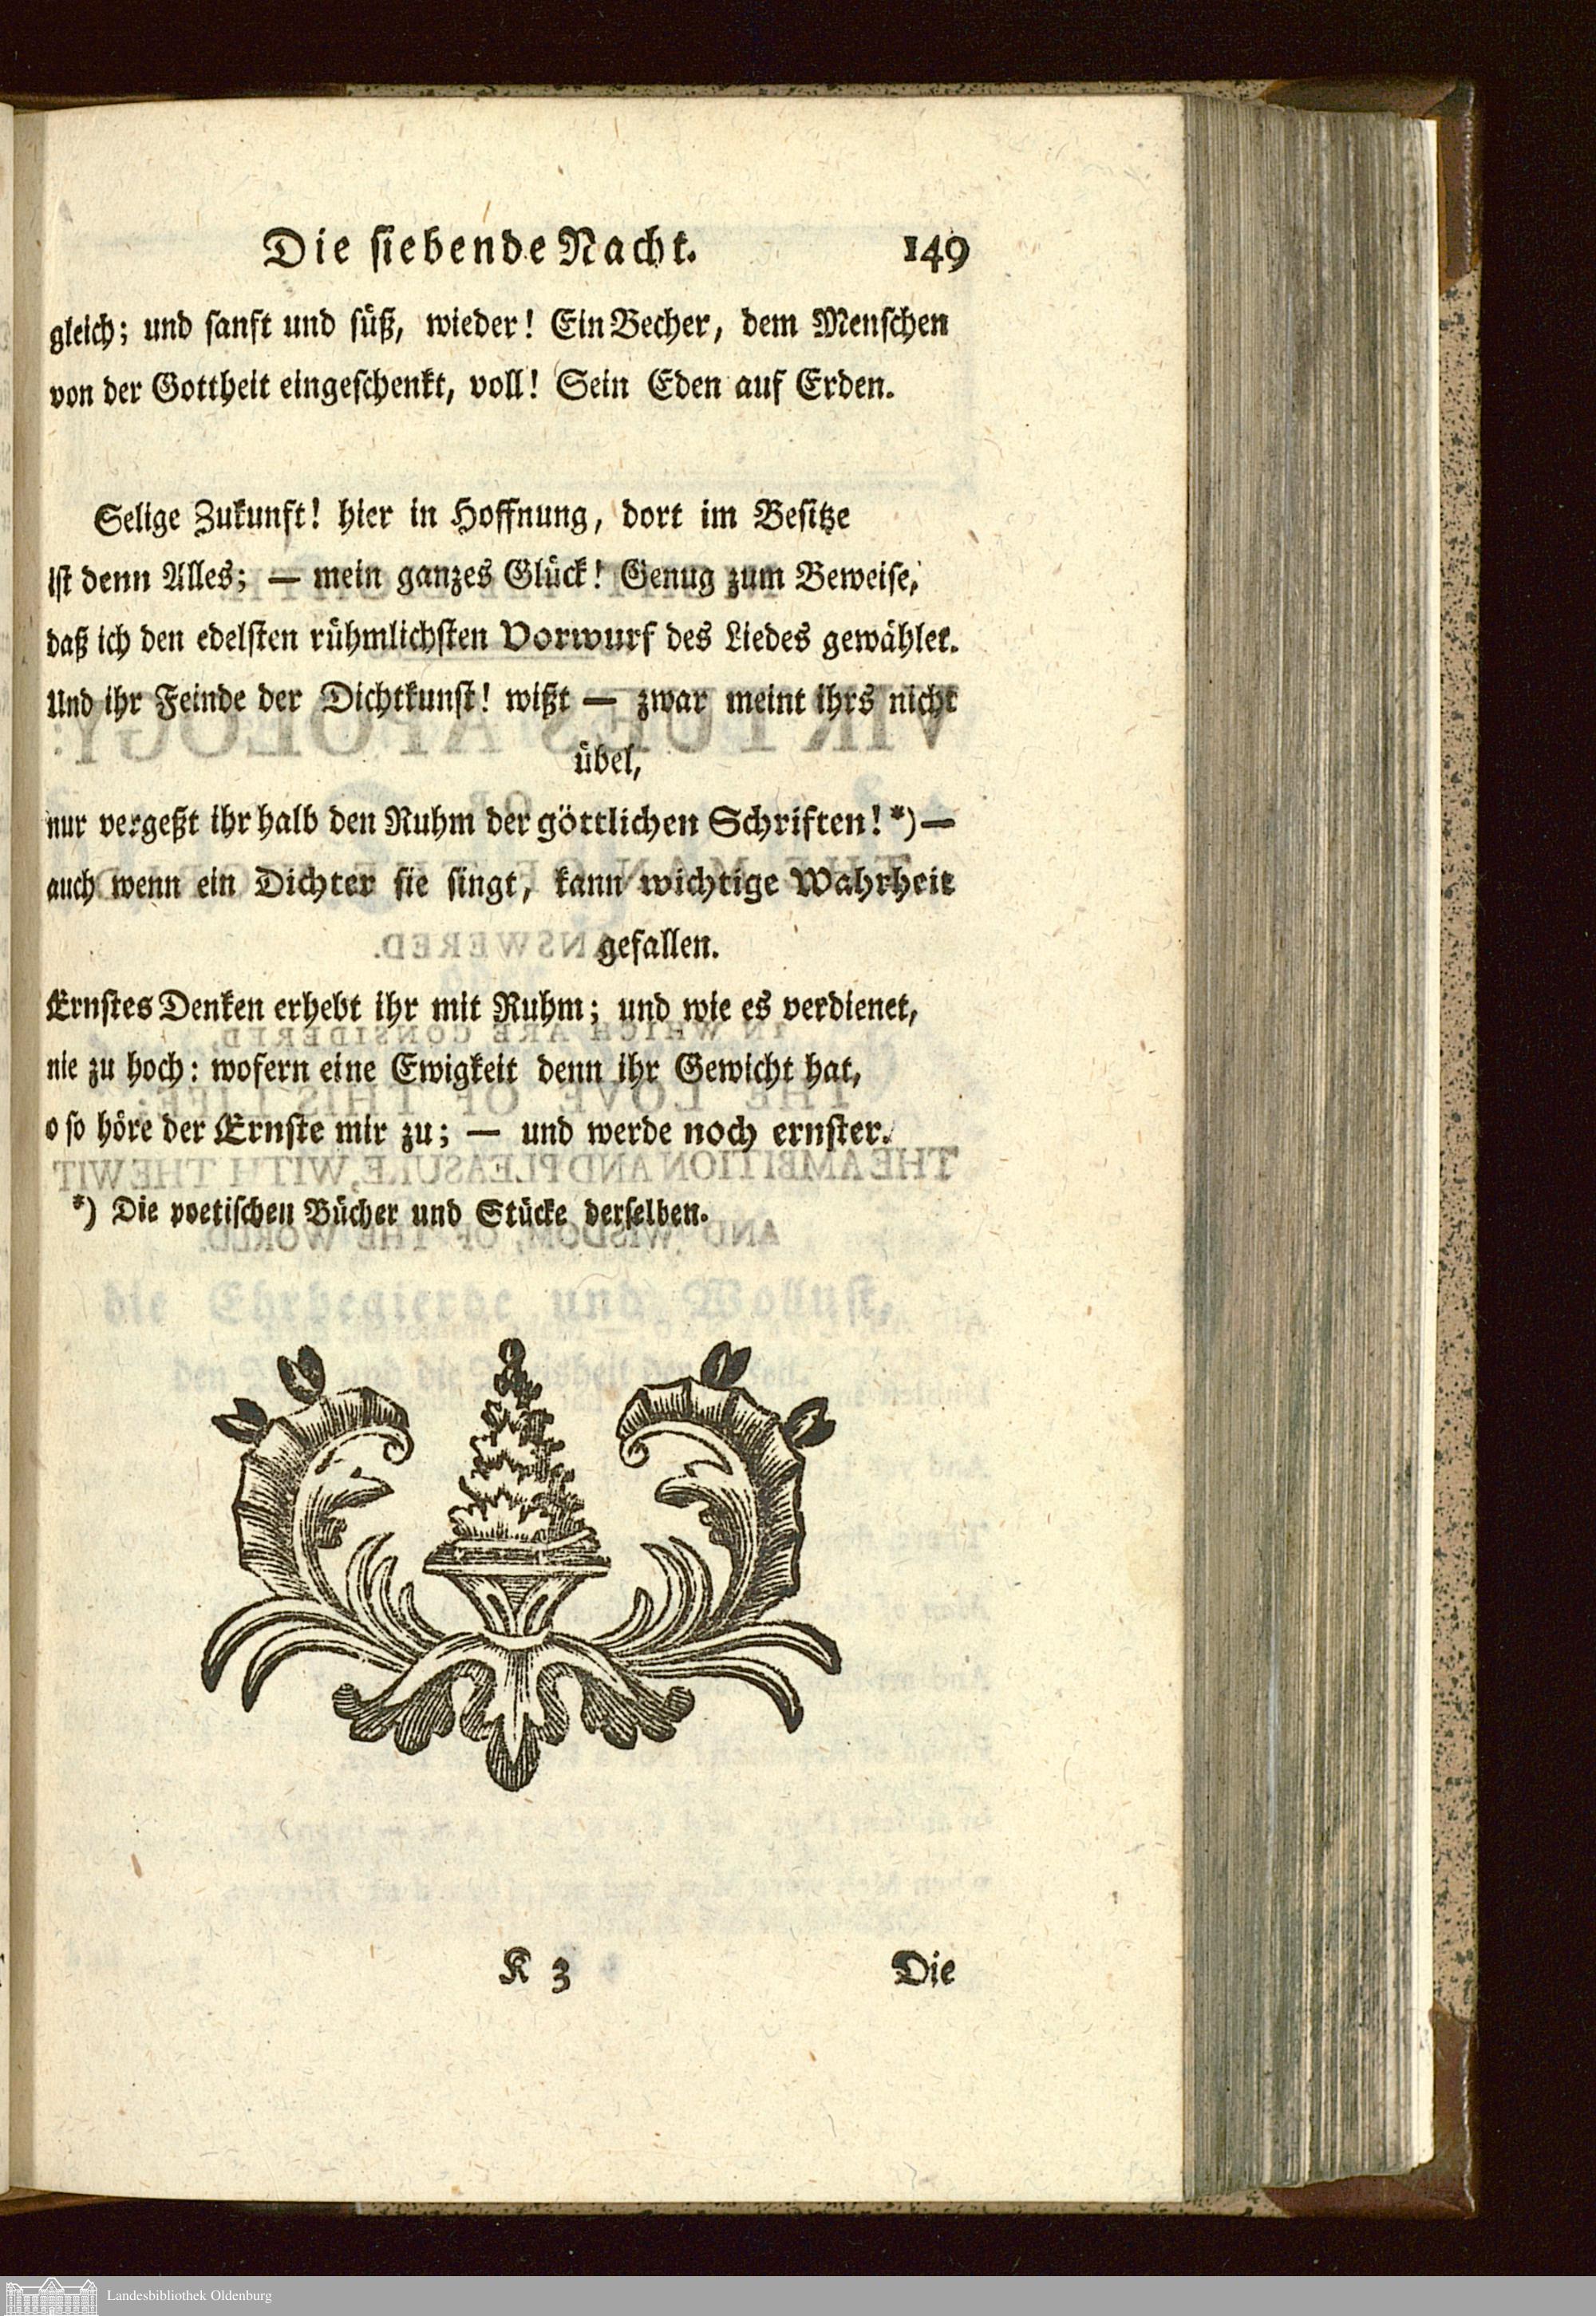 Die siebende Nacht. 149
gleich; und sanft und süß, wieder! Ein Becher, dem Menschen
von der Gottheit eingeschenkt, voll! Sein Eden auf Erden.
Selige Zukunft! hier in Hoffnung, dort im Besitze
ist denn Alles; — mein ganzes Glück! Genug zum Beweise,
daß ich den edelsten rühmlichsten Vorwurf des Liedes gewählet.
Und ihr Feinde der Dichtkunst! wißt — zwar meint ihrs nicht
übel,
nur vergeßt ihr halb den Ruhm der göttlichen Schriften! *) —
auch wenn ein Dichter sie singt, kann wichtige Wahrheit
gefallen.
Ernstes Denken erhebt ihr mit Ruhm; und wie es verdienet,
nie zu hoch: wofern eine Ewigkeit denn ihr Gewicht hat,
o so höre der Ernste mir zu; — und werde noch ernster.
*) Die poetischen Bücher und Stücke derselben.
K 3 Die
Landesbibliothek Oldenburg